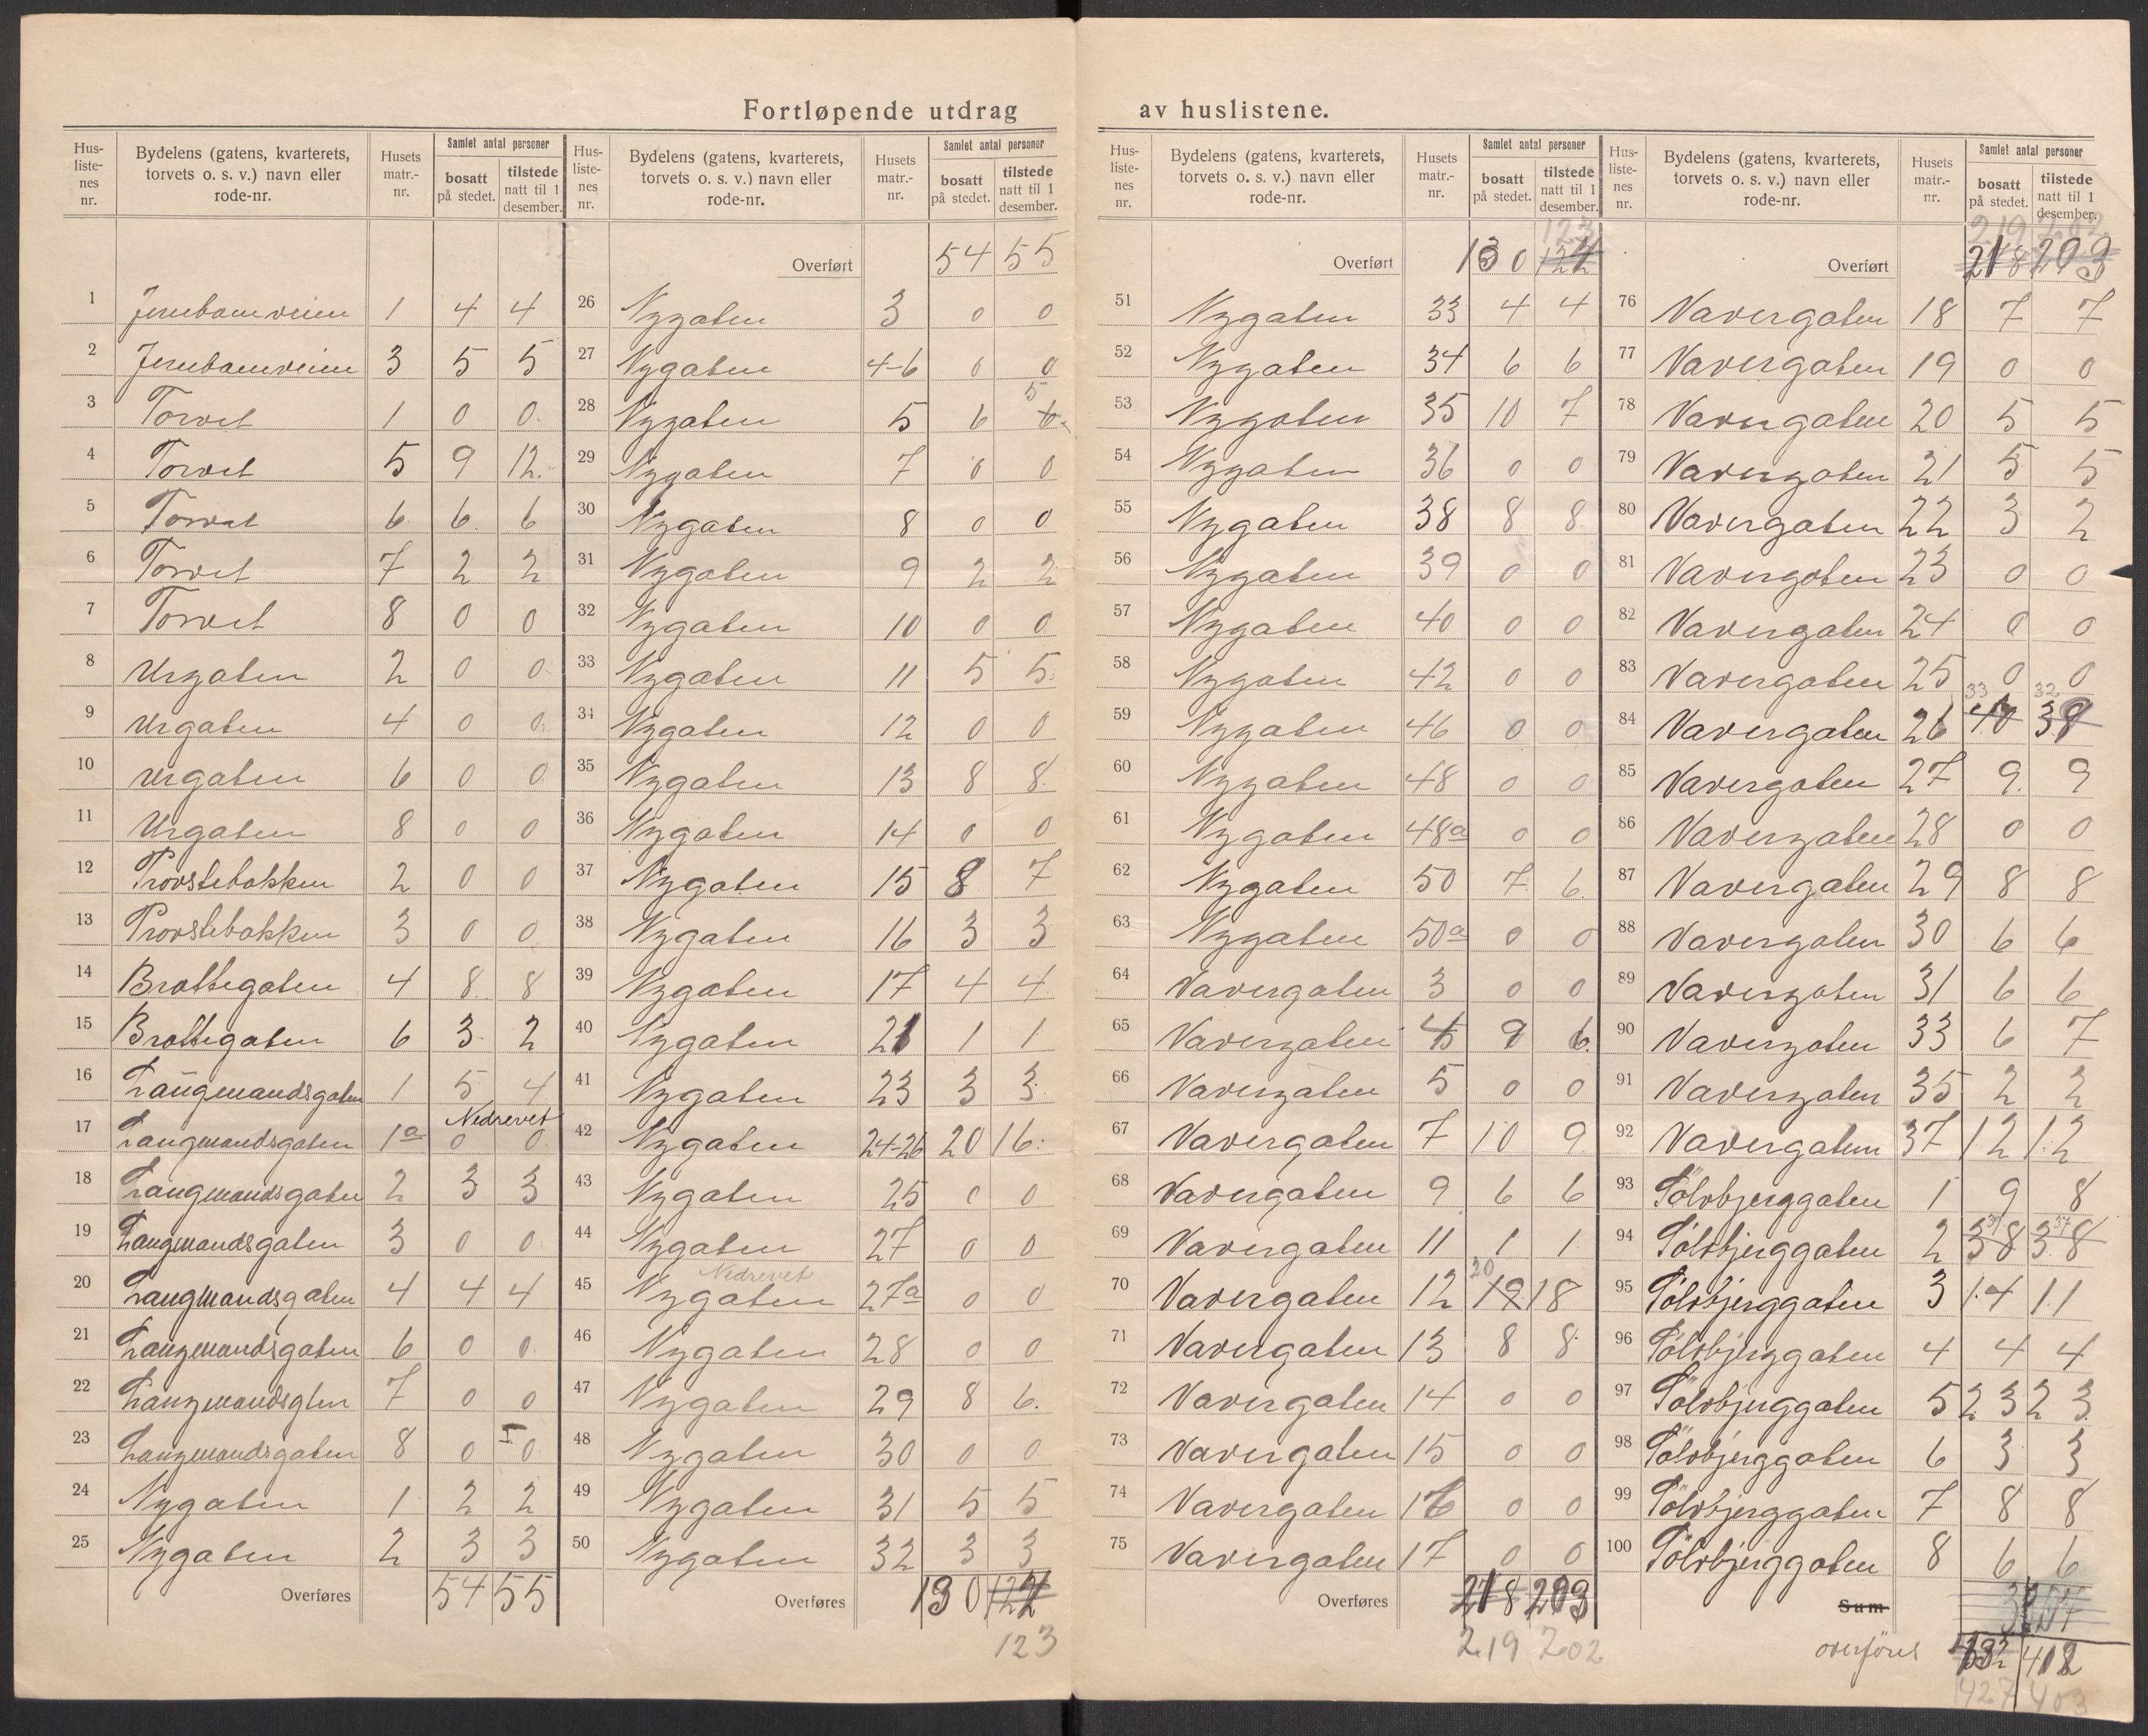 Fortløpende utdrag av huslistene.
Hus-liste-nes nr. | Bydelens (gatens, kvarterets, torvets o. s. v.) navn eller rode-nr. | Husets matr.-nr. | Samlet antal personer bosatt på stedet. | tilstede natt til 1 desember.
1 Jernbaneveien 1 4 4
2 Jernbaneveien 3 5 5
3 Torvet 1 0 0
4 Torvet 5 9 12
5 Torvet 6 6 6
6 Torvet 7 2 2
7 Torvet 8 0 0
8 Urgaten 2 0 0
9 Urgaten 4 0 0
10 Urgaten 6 0 0
11 Urgaten 8 0 0
12 Provstebakken 2 0 0
13 Provstebakken 3 0 0
14 Brattegaten 4 8 8
15 Brattegaten 6 3 2
16 Langmandsgaten 1 5 4
17 Langmandsgaten 1a Nedrevet 0 0
18 Langmandsgaten 2 3 3
19 Langmandsgaten 3 0 0
20 Langmandsgaten 4 4 4
21 Langmandsgaten 6 0 0
22 Langmandsgten 7 0 0
23 Langmandsgaten 8 0 0
24 Nygaten 1 2 2
25 Nygaten 2 3 3
Overføres 54 55
Hus-liste-nes nr. | Bydelens (gatens, kvarterets, torvets o. s. v.) navn eller rode-nr. | Husets matr.-nr. | Samlet antal personer bosatt på stedet. | tilstede natt til 1 desember.
Overført 54 55
26 Nygaten 3 0 0
27 Nygaten 4-6 0 0
28 Nygaten 5 6 6 5
29 Nygaten 7 0 0
30 Nygaten 8 0 0
31 Nygaten 9 2 2
32 Nygaten 10 0 0
33 Nygaten 11 5 5
34 Nygaten 12 0 0
35 Nygaten 13 8 8
36 Nygaten 14 0 0
37 Nygaten 15 8 7
38 Nygaten 16 3 3
39 Nygaten 17 4 4
40 Nygaten 21 1 1
41 Nygaten 23 3 3
42 Nygaten 24-26 20 16
43 Nygaten 25 0 0
44 Nygaten 27 0 0
45 Nygaten Nedrevet 27a 0 0
46 Nygaten 28 0 0
47 Nygaten 29 8 6
48 Nygaten 30 0 0
49 Nygaten 31 5 5
50 Nygaten 32 3 3
Overføres 130 124
123
Hus-liste-nes nr. | Bydelens (gatens, kvarterets, torvets o. s. v.) navn eller rode-nr. | Husets matr.-nr. | Samlet antal personer bosatt på stedet. | tilstede natt til 1 desember.
123
Overført 130 124
51 Nygaten 33 4 4
52 Nygaten 34 6 6
53 Nygaten 35 10 7
54 Nygaten 36 0 0
55 Nygaten 38 8 8
56 Nygaten 39 0 0
57 Nygaten 40 0 0
58 Nygaten 42 0 0
59 Nygaten 46 0 0
60 Nygaten 48 0 0
61 Nygaten 48a 0 0
62 Nygaten 50 7 6
63 Nygaten 50a 0 0
64 Vavergaten 3 0 0
65 Vavergaten 4 9 6
66 Vavergaten 5 0 0
67 Vavergaten 7 10 9
68 Vavergaten 9 6 6
69 Vavergaten 11 1 1
70 Vavergaten 12 20 19 18
71 Vavergaten 13 8 8
72 Vavergaten 14 0 0
73 Vavergaten 15 0 0
74 Vavergaten 16 0 0
75 Vavergaten 17 0 0
Overføres 218 203
219 202
Hus-liste-nes nr. | Bydelens (gatens, kvarterets, torvets o. s. v.) navn eller rode-nr. | Husets matr.-nr. | Samlet antal personer bosatt på stedet. | tilstede natt til 1 desember.
219 202
Overført 218 203
76 Vavergaten 18 7 7
77 Vavergaten 19 0 0
78 Vavergaten 20 5 5
79 Vavergaten 21 5 5
80 Vavergaten 22 3 2
81 Vavergaten 23 0 0
82 Vavergaten 24 0 0
83 Vavergaten 25 0 0
84 Vavergaten 26 33 40 32 38
85 Vavergaten 27 9 9
86 Vavergaten 28 0 0
87 Vavergaten 29 8 8
88 Vavergaten 30 6 6
89 Vavergaten 31 6 6
90 Vavergaten 33 6 7
91 Vavergaten 35 2 2
92 Vavergaten 37 12 12
93 Sölvbjerggaten 1 9 8
94 Sölvbjerggaten 2 38 38 37
95 Sölvbjerggaten 3 14 11
96 Sölvbjerggaten 4 4 4
97 Sölvbjerggaten 5 23 23
98 Sölvbjerggaten 6 3 3
99 Sölvbjerggaten 7 8 8
100 Sölvbjerggaten 8 6 6
Sum
overföres 412
427 403